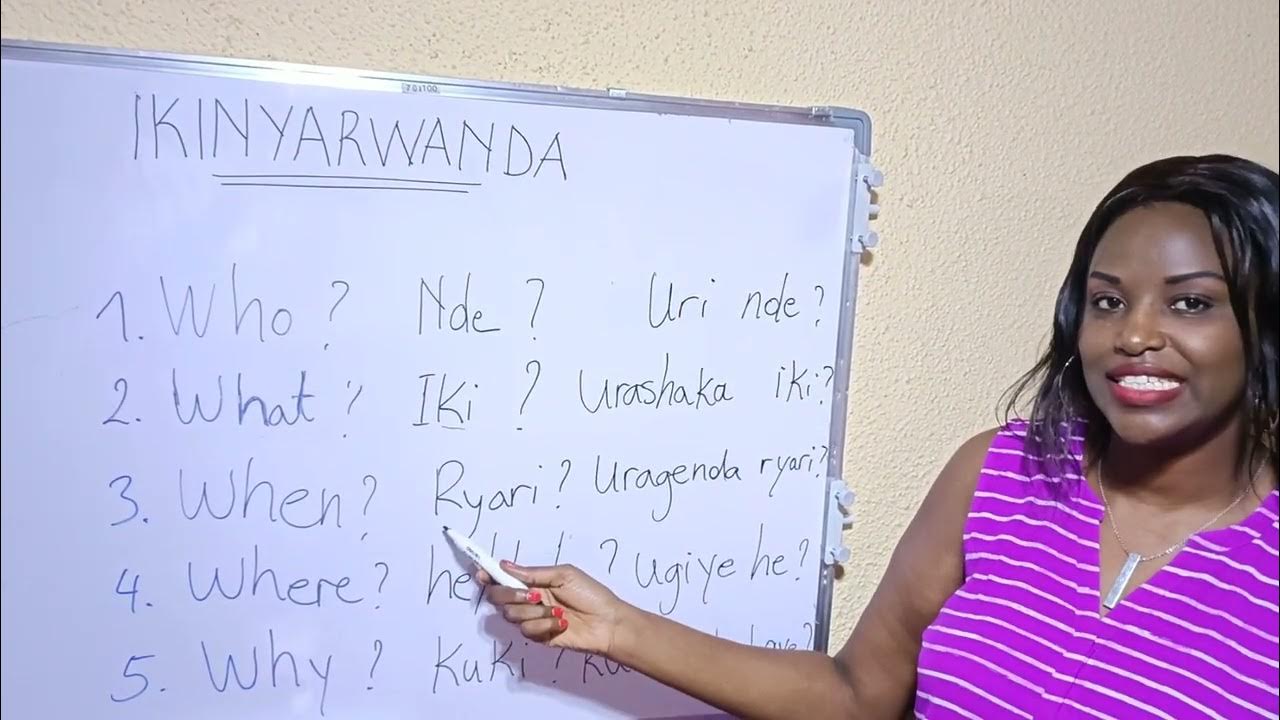 70x100
IKINYARWANDA
1. Who? Nde? Uri nde?
2. What? Iki? Urashaka iki?
3. When? Ryari? Uragenda ryari?
4. Where? ? Ugiye he?
5. Why? Kuki?